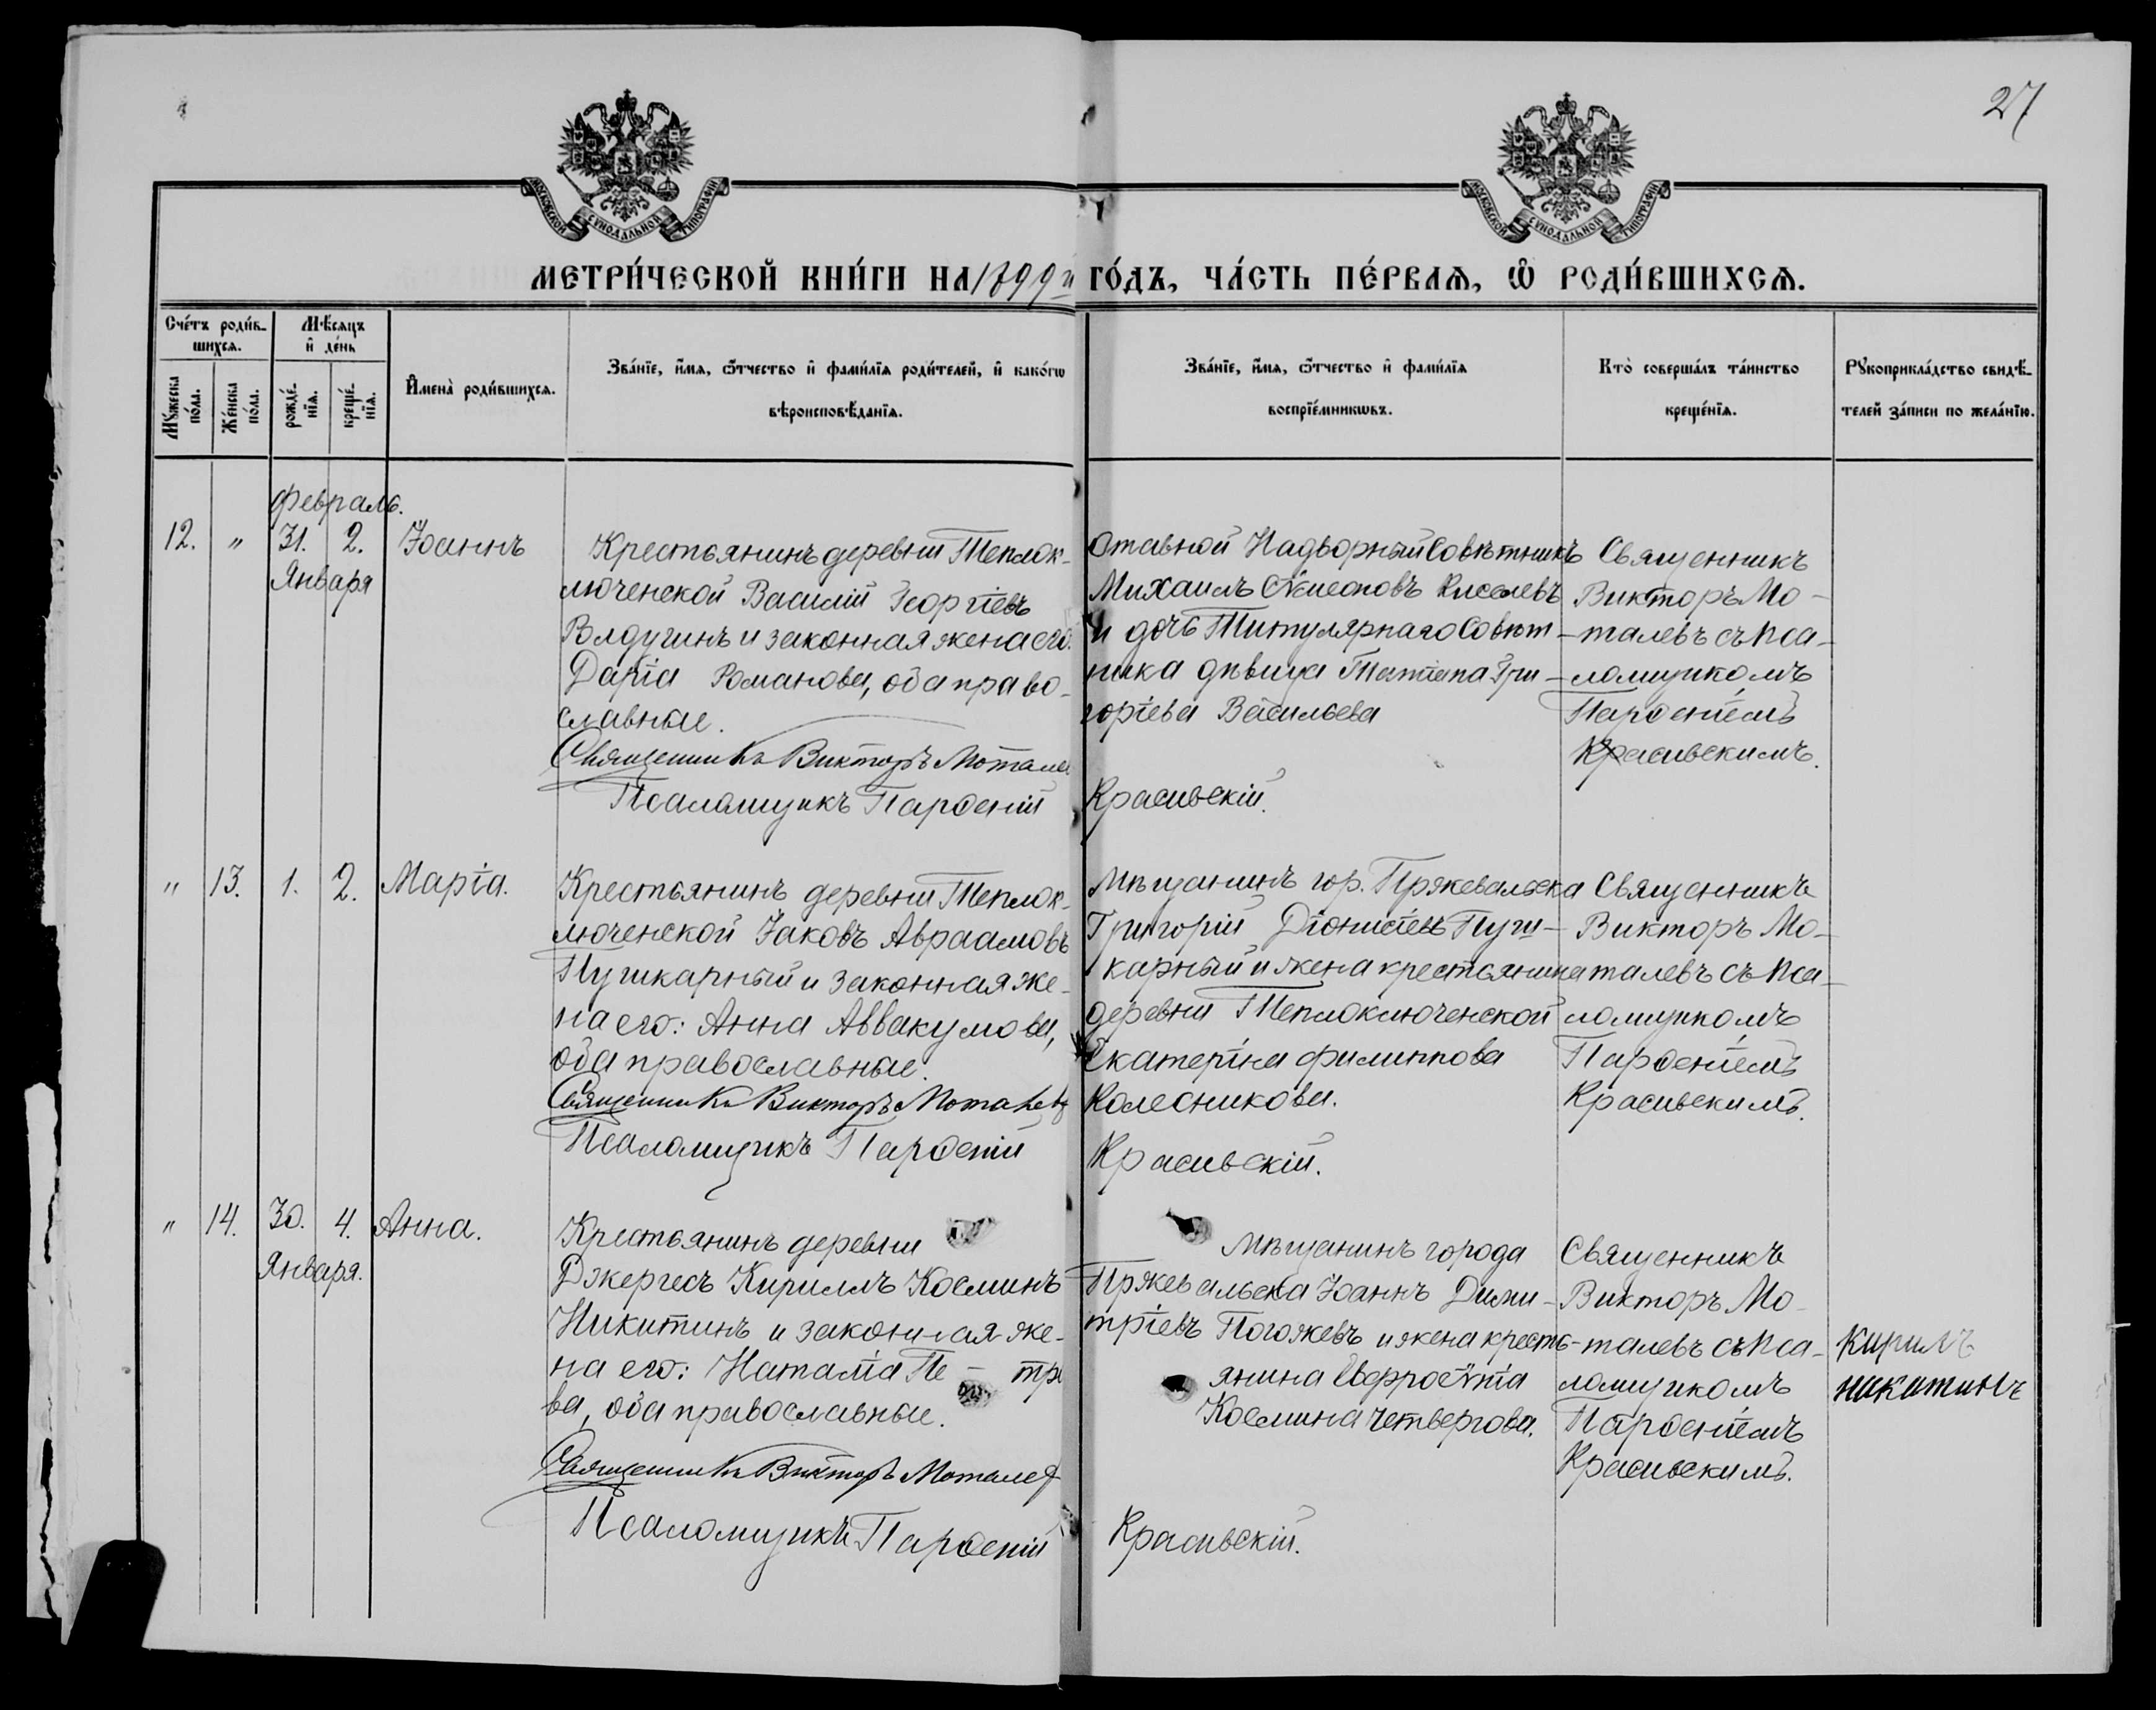 27
МОСКОВСКОЙ СѴНОДАЛЬНОЙ ТИПОГРАФІИ
МОСКОВСКОЙ СѴНОДАЛЬНОЙ ТИПОГРАФІИ
МЕТРИ́ЧЕСКОЙ КНИ́ГИ НА 1899й ГО́ДЪ, ЧА́СТЬ ПЕ́РВАѦ, Ѡ РОДИ́ВШИХСѦ.
Сче́тъ роди́в-
шихсѧ.
Мѣ́сѧцъ
и҆ де́нь
Мꙋ́жеска
по́ла.
Же́нска
по́ла.
рожде́-
нїѧ.
креще́-
нїѧ.
И҆мена̀ роди́вшихсѧ.
Зва́нїе, и҆́мѧ, ѻ҆́тчество и҆ фами́лїѧ роди́телей, и҆ како́гѡ
вѣроисповѣ́данїѧ.
Зва́нїе, и҆́мѧ, ѻ҆́тчество и҆ фами́лїѧ
воспрїе́мникѡвъ.
Кто̀ соверша́лъ та́инство
креще́нїѧ.
Рꙋкоприкла́дство свидѣ́-
телей за́писи по жела́нїю.
Февраль.
12. " 31. 2. Іоаннъ
Января
Крестьянинъ деревни Теплок-
люченской Василій Георгіевъ
Болдугинъ и законная жена его.
Дарія Романова, оба право-
славные.
Священникъ Викторъ Мотале
Псаломщикъ Парѳеній
ставной Надворный Совѣтникъ
Михаилъ Симеоновъ Киселевъ
и дочь Титулярнаго Совѣт-
ника дѣвица Татіана Гри-
горіева Васильева
Красивскій.
Священникъ
Викторъ Мо-
талевъ съ пса-
ломщикомъ
Парѳеніемъ
Красивскимъ.
" 13. 1. 2. Марія.
Крестьянинъ деревни Теплок-
люченской Іаковъ Авраамовъ
Пушкарный и законная же-
на его: Анна Аввакумова,
оба православные.
Священникъ Викторъ Моталевъ
Псаломщикъ Парѳеній
Мѣщанинъ гор. Пржевальска
Григорій Діонисіевъ Пуш-
карный и жена крестьянина
деревни Теплоключенской
Екатерина Филиппова
Колесникова.
Красивскій.
Священникъ
Викторъ Мо-
талевъ съ пса-
ломщикомъ
Парѳеніемъ
Красивскимъ.
" 14. 30. 4. Анна.
Января.
Крестьянинъ деревни
Джергесъ Кириллъ Косминъ
Никитинъ и законная же-
на его: Наталія Пе - тро
ва, оба православные.
Священникъ Викторъ Моталев
Псаломщикъ Парѳеній
Мѣщанинъ города
Пржевальска Іоаннъ Дими-
тріевъ Погожевъ и жена кресть-
янина Евфросинія
Космина Четвергова.
Красивскій.
Священникъ
Викторъ Мо-
талевъ съ пса-
ломщикомъ
Парѳеніемъ
Красивскимъ.
Кирилъ
никитинъ